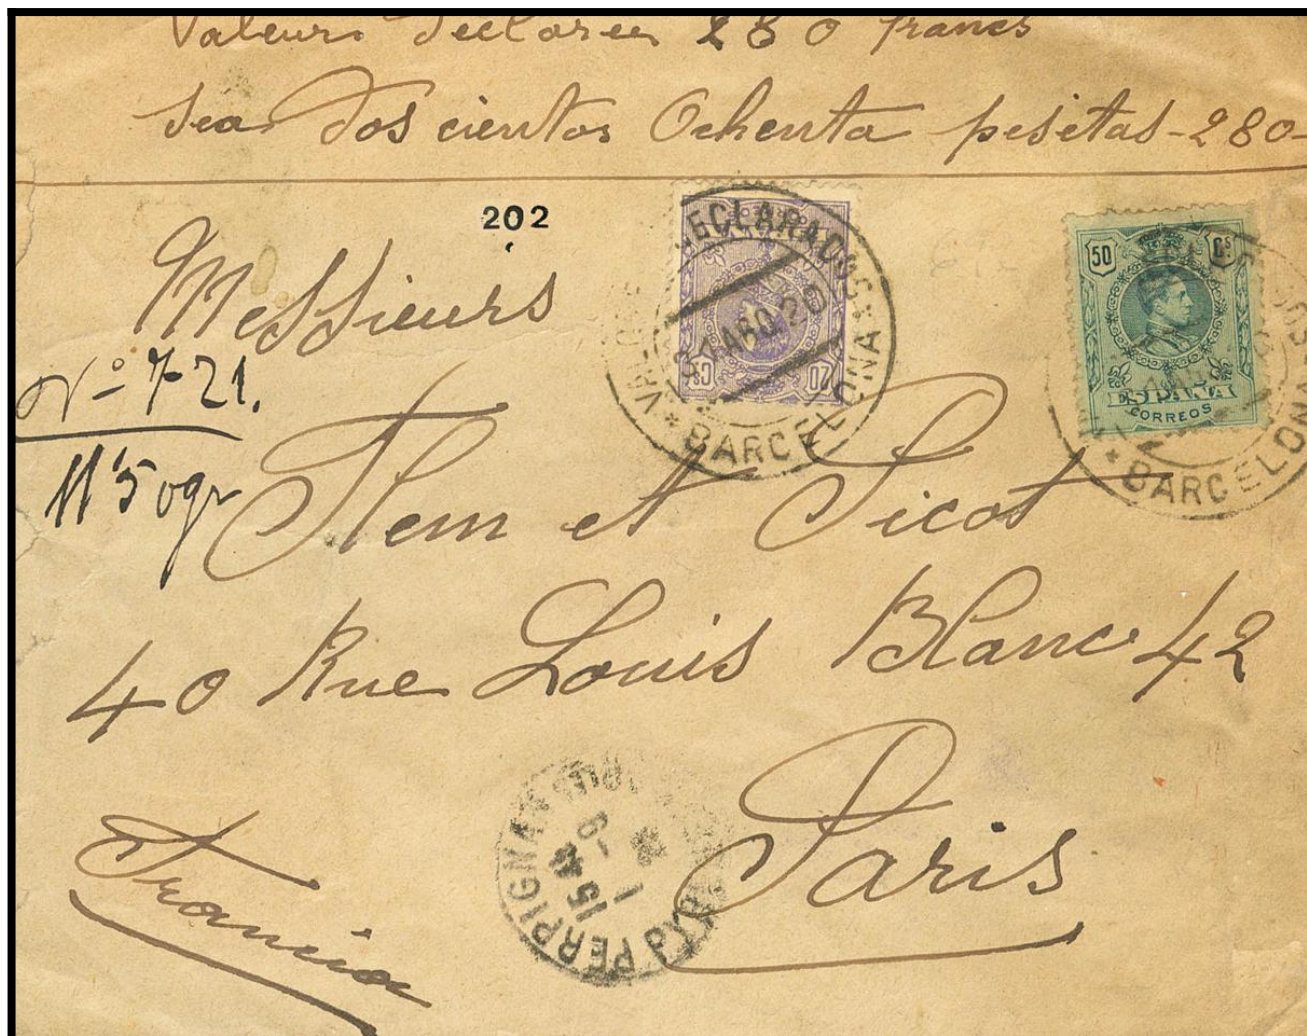 Valeurs declarees 280 francs
Sea Dos cientos Ochenta pesetas-280-
202
Messieurs
Nº 721.
11'50gr
Flem et Picot
40 Rue Louis Blanc 42
Paris
Francia
DECLARADOS
31 AGO 20
* BARCELONA
50 Cs
ESPAÑA
CORREOS
* BARCELONA
20 Cs
PERPIGNAN
15
1 - 9